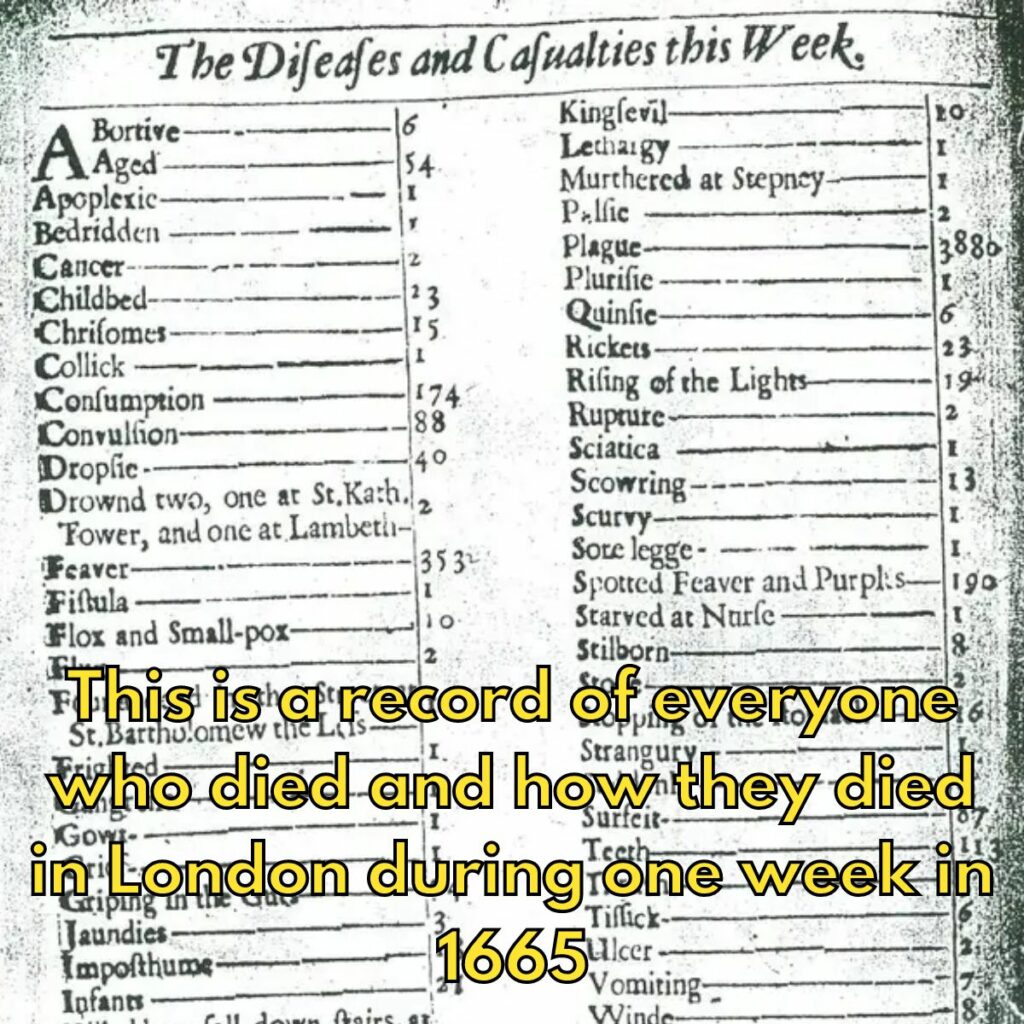 The Diſeaſes and Caſualties this Week.
ABortive 6
Aged 54
Apoplexie 1
Bedridden 1
Cancer 2
Childbed 23
Chriſomes 15
Collick 1
Conſumption 174
Convulſion 88
Dropſie 40
Drownd two, one at St.Kath. 2
Tower, and one at Lambeth
Feaver 353
Fiſtula 1
Flox and Small-pox 10
2
St.Bartholomew the Leſs
1
Frighted
Gowt 1
Grief
Griping in the Guts
Jaundies 3
Impoſthume
Infants
fall down ſtairs at
Kingſevil 10
Lethargy 1
Murthered at Stepney 1
Palſie 2
Plague 3880
Pluriſie 1
Quinſie 6
Rickets 23
Riſing of the Lights 19
Rupture 2
Sciatica 1
Scowring 13
Scurvy 1
Sore legge 1
Spotted Feaver and Purples 190
Starved at Nurſe 1
Stilborn 8
2
Stopping of the 16
Strangury 1
Surfeit 87
Teeth 113
Tiſſick 6
Ulcer 2
Vomiting 7
Winde 8
This is a record of everyone
who died and how they died
in London during one week in
1665